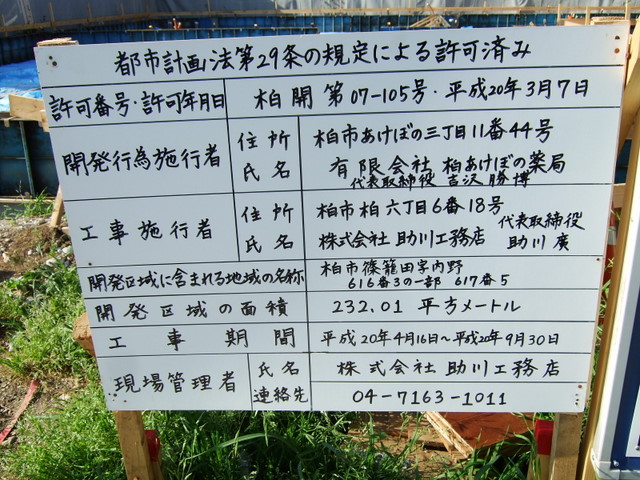 都市計画法第29条の規定による許可済み
許可番号・許可年月日 柏開第07-105号・平成20年3月7日
開発行為施行者 住所 柏市あけぼの三丁目11番44号
氏名 有限会社 柏あけぼの薬局
代表取締役 吉沢勝博
工事施行者 住所 柏市柏六丁目6番18号
氏名 株式会社 助川工務店 代表取締役 助川廣
開発区域に含まれる地域の名称 柏市篠籠田字内野
616番3の一部 617番5
開発区域の面積 232.01 平方メートル
工事期間 平成20年4月16日~平成20年9月30日
現場管理者 氏名 株式会社 助川工務店
連絡先 04-7163-1011